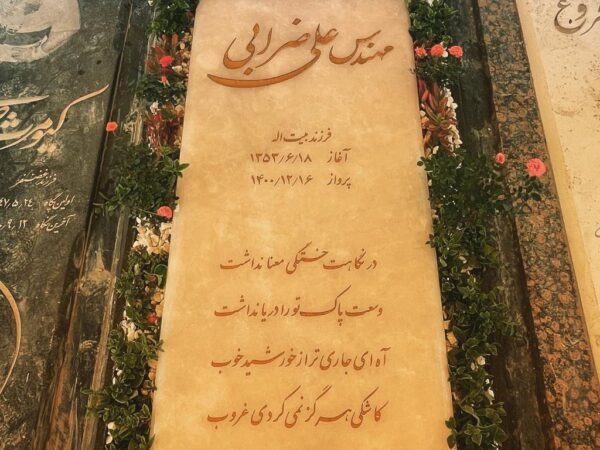 مهندس علی ضرابی
فرزند بیت اله
آغاز ۱۳۵۳/۶/۱۸
پرواز ۱۴۰۰/۱۲/۱۶
در نگاهت خستگی معنا نداشت
وسعت پاک تو را دریا نداشت
آه ای جاری تر از خورشید خوب
کاشکی هرگز نمی کردی غروب
فروغ